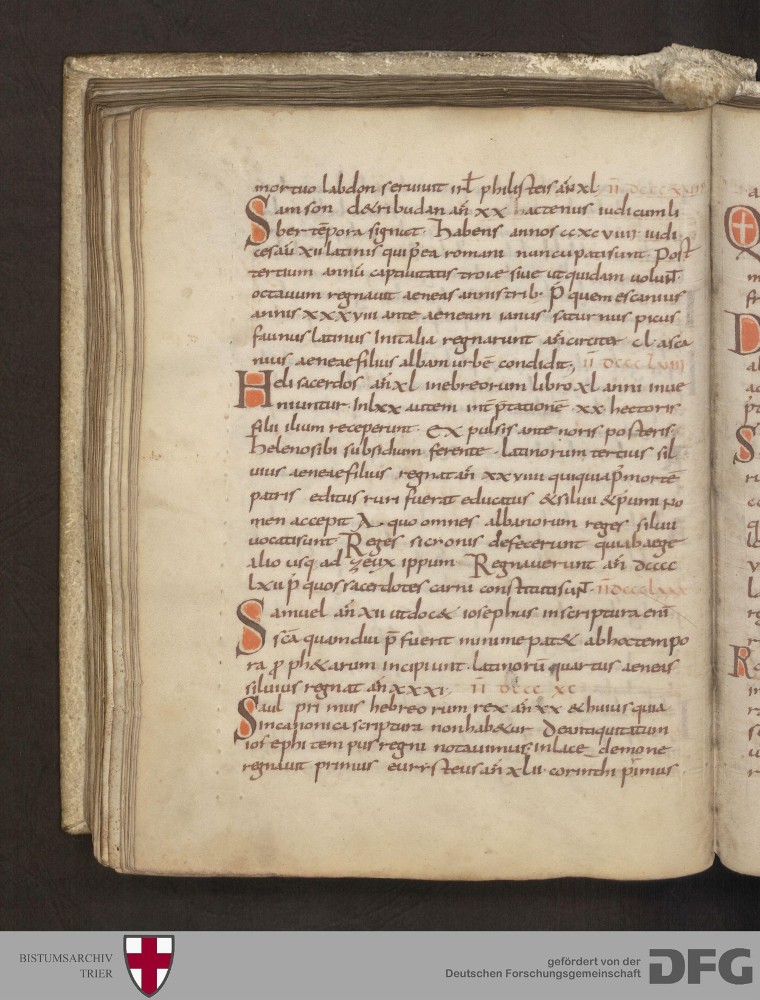 mortuo labdon seruiuit irł philisteis añ xl īī dcccc xxiii
Samson de&ribudan añ xx hactenus iudicum li
ber tēpora signat. habens annos ccxcviiii iudi
cesañ xii latinis qui p̄ea romani nuncupatisunt. Post
tertium annū captiuitatis troie siue ut quidam uolunt
octauum regnauit aeneas annis trib. P̄ quem escanius
annis xxxviii ante aeneam ianus saturnus picus
faunus latinus Initalia regnarunt añ circiter cl asca
nius aeneaefilius albam urbē condidit; īī dccc lxiii
Heli sacerdos añ xl inebreorum libro xl anni inue
niuntur. In lxx autem int̄p̄tationē xx hectoris
filii ilium receperunt. Ex pulsis antenoris posteris
helenosibi subsidium ferente. latinorum tertius sil
uius aeneaefilius regnat añ xxviiii quiquiap̄mortē
patris editus ruri fuerat educatus &siluii &p̄umii no
men accepit A quo omnes albanorum reges siluii
uocatisunt Reges sicronis defecerunt quiabaege
alio usq ad zeuxippum Regnauerunt añ dcccc
lxii p̄ quos sacerdotes carni constitutisunt. īī dccclxxx
Samuel añ xii utdoc& iosephus inscriptura enī
scā quamdiu p̄fuerit minime pat& ab hoctempo
ra ꝓ ph&arum incipiunt. latinorū quartus aeneas
siluius regnat añ xxxi, īī dccc xc
Saul pri mus hebreo rum rex añ xx &huius quia
incanonica scriptura nonhab&ur deantiquitatum
iosephi tem pus regni notauimus; inlace demone
regnauit primus euristeus añ xlii corinthi p̄imus
BISTUMSARCHIV
TRIER
gefördert von der
Deutschen Forschungsgemeinschaft
DFG